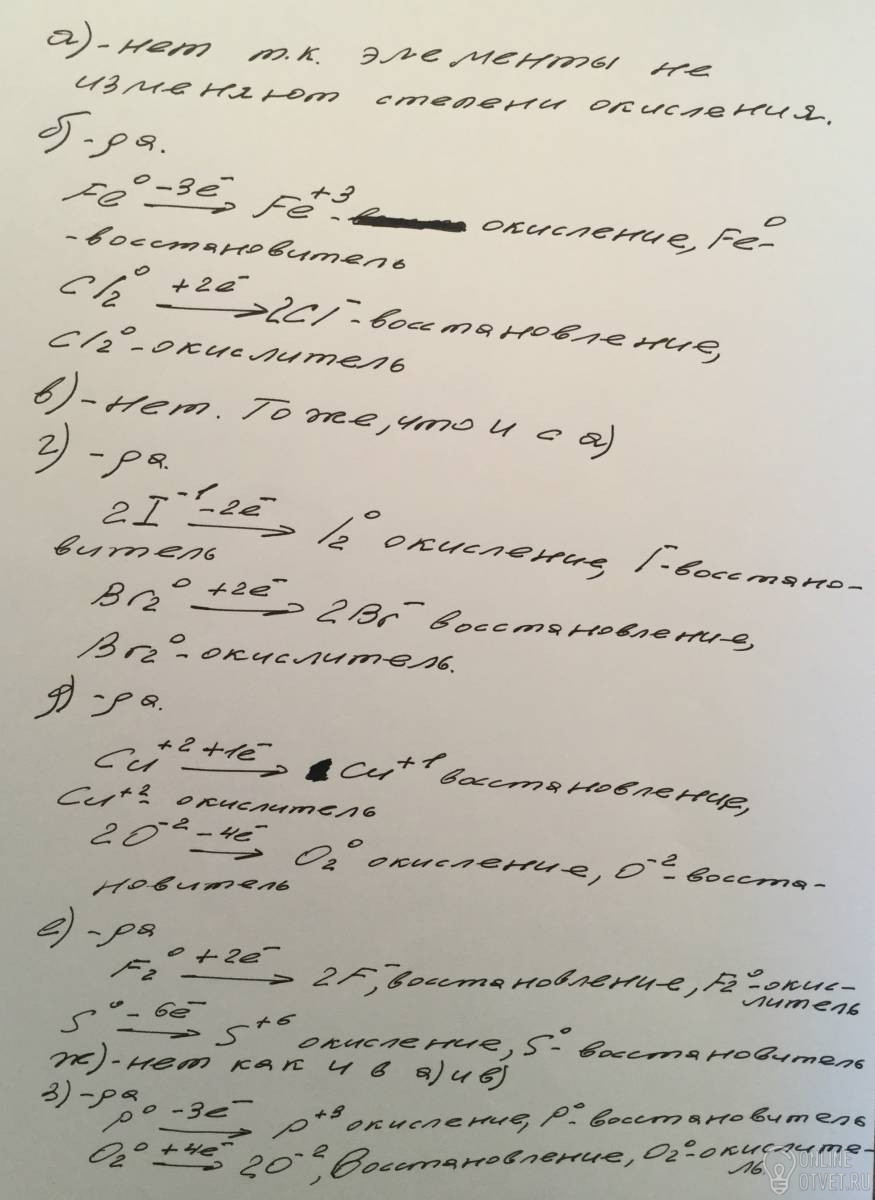 а) - нет т.к. элементы не
изменяют степени окисления.
б) - да.
Fe⁰ −3e⁻ → Fe⁺³ - окисление, Fe⁰-
-восстановитель
Cl₂⁰ +2e⁻ → 2Cl⁻ - восстановление,
Cl₂⁰ - окислитель
в) - нет. То же, что и с а)
г) - да.
2I⁻¹ −2e⁻ → I₂⁰ окисление, I⁻ - восстано-
витель
Br₂⁰ +2e⁻ → 2Br⁻ восстановление,
Br₂⁰ - окислитель.
д) - да.
Cu⁺² +1e⁻ → Cu⁺¹ восстановление,
Cu⁺² - окислитель
2O⁻² −4e⁻ → O₂⁰ окисление, O⁻² - восста-
новитель
е) - да
F₂⁰ +2e⁻ → 2F⁻, восстановление, F₂⁰ - окис-
литель
S⁰ −6e⁻ → S⁺⁶ окисление, S⁰ - восстановитель
ж) - нет как и в а) и в)
з) - да
P⁰ −3e⁻ → P⁺³ окисление, P⁰ - восстановитель
O₂⁰ +4e⁻ → 2O⁻², восстановление, O₂⁰ - окислите-
ль.
ONLINE
OTVET.RU